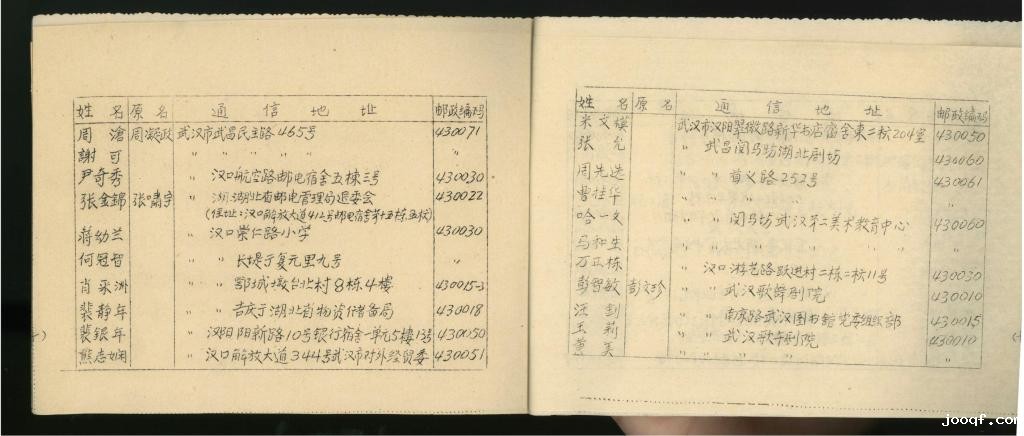 姓名 原名 通信地址 邮政编码
周滄 周凝政 武汉市武昌民主路465号 430071
謝可 〃 〃 〃 〃 〃
尹奇秀 〃 汉口航空路邮电宿舍五棟三号 430030
张金錦 张啸宇 〃 湖北省邮电管理局退委会 430022
(住址:汉口解放大道412号邮电宿舍第十五栋五楼)
蒋幼兰 〃 汉口崇仁路小学 430030
何冠智 〃 〃 长堤子复元里九号 〃
肖采洲 〃 鄂城墩台北村8栋4楼 430015-3
裴静年 〃 吉庆子湖北省物资储备局 430018
裴银年 〃 汉阳阳新路10号银行宿舍一单元5楼13号 430050
熊志娴 〃 汉口解放大道344号武汉市对外经贸委 430051
姓名 原名 通信地址 邮政编码
米文模 武汉市汉阳翠微路新华书店宿舍東二栋204室 430050
张允 〃 武昌阅马坊湖北剧坊 430060
周先选 〃 〃 首义路252号 430061
曹桂华 〃 〃 〃 〃
哈一文 〃 〃 阅马坊武汉第二美术教育中心 430060
马和生 〃 〃 〃 〃 〃
万正栋 〃 汉口游艺路跃进村二栋二栋11号 430030
彭智敏 彭文珍 〃 〃 武汉歌舞剧院 430010
汪钊 〃 〃 南京路武汉图书館党委组织部 430015
王莉 〃 〃 武汉歌舞剧院 430010
董美 〃 〃 〃 〃
jooqf.com